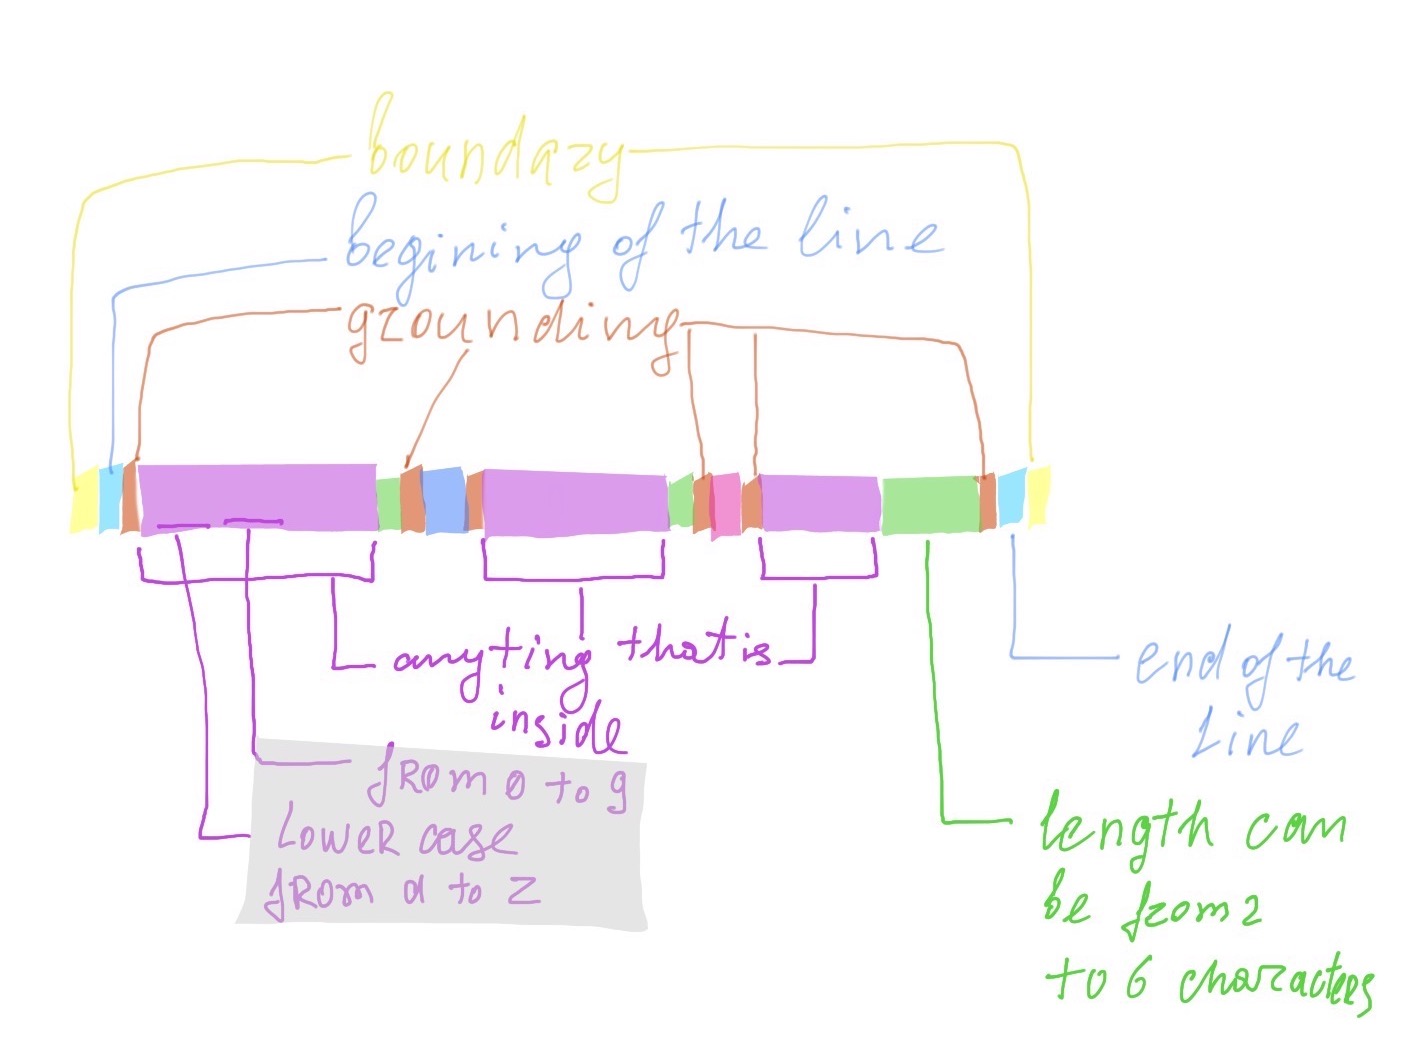 boundary
begining of the line
grounding
anyting that is
inside
from 0 to 9
Lower case
from a to z
end of the
line
length can
be from 2
to 6 characters